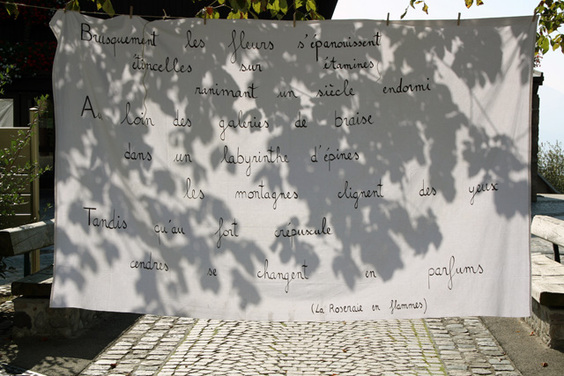 Brusquement les fleurs s'épanouissent
étincelles sur étamines
ranimant un siècle endormi
Au loin des galeries de braise
dans un labyrinthe d'épines
les montagnes clignent des yeux
Tandis qu'au fort crépuscule
cendres se changent en parfums
(La Roseraie en flammes)